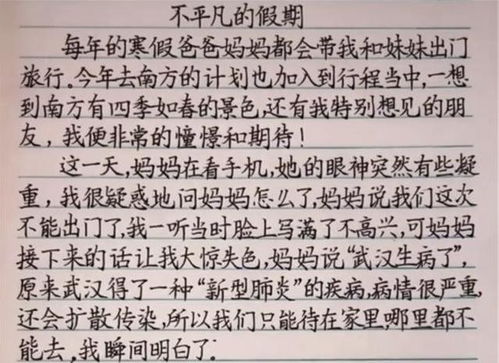 不平凡的假期
每年的寒假爸爸妈妈都会带我和妹妹出门
旅行。今年去南方的计划也加入到行程当中,一想
到南方有四季如春的景色,还有我特别想见的朋
友，我便非常的憧憬和期待！
这一天，妈妈在看手机，她的眼神突然有些凝
重，我很疑惑地问妈妈怎么了，妈妈说我们这次
不能出门了，我一听当时脸上写满了不高兴，可妈妈
接下来的话让我大惊失色，妈妈说“武汉生病了”，
原来武汉得了一种“新型肺炎”的疾病，病情很严重，
还会扩散传染，所以我们只能待在家里，哪里都不
能去。我瞬间明白了。